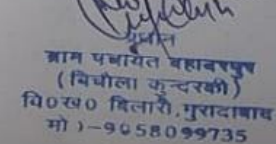 प्रधान
ग्राम पंचायत बहादरपुर
(विचौला कुन्दरकी)
वि०ख० बिलारी,मुरादाबाद
मो )-9058099735